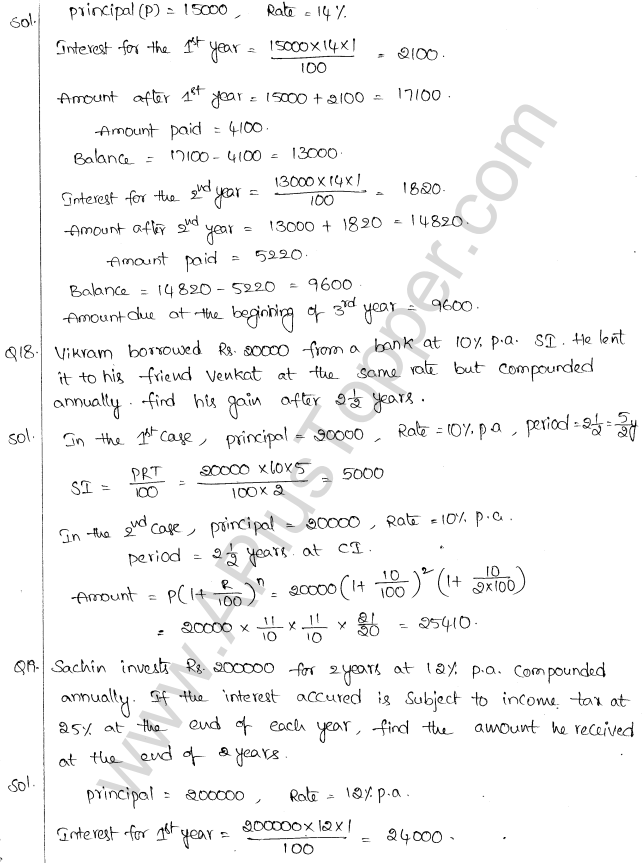 Sol. principal (P) = 15000, Rate = 14%
Interest for the 1st year = 15000×14×1/100 = 2100.
Amount after 1st year = 15000 + 2100 = 17100.
Amount paid = 4100.
Balance = 17100 - 4100 = 13000.
Interest for the 2nd year = 13000×14×1/100 = 1820.
Amount after 2nd year = 13000 + 1820 = 14820.
Amount paid = 5220.
Balance = 14820 - 5220 = 9600.
Amount due at the beginning of 3rd year = 9600.
Q18. Vikram borrowed Rs. 20000 from a bank at 10% p.a. SI. He lent
it to his friend Venkat at the same rate but compounded
annually. find his gain after 2 1/2 years.
Sol. In the 1st case, principal = 20000, Rate = 10% p.a, period = 2 1/2 = 5/2 y
SI = PRT/100 = 20000 × 10 × 5/100 × 2 = 5000
In the 2nd case, principal = 20000, Rate = 10% p.a.
period = 2 1/2 years at CI.
Amount = P(1 + R/100)^n = 20000 (1 + 10/100)^2 (1 + 10/2×100)
= 20000 × 11/10 × 11/10 × 21/20 = 25410.
Q19. Sachin invests Rs. 200000 for 2 years at 12% p.a. compounded
annually. If the interest accured is subject to income tax at
25% at the end of each year, find the amount he received
at the end of 2 years.
Sol. principal = 200000, Rate = 12% p.a.
Interest for 1st year = 200000×12×1/100 = 24000.
www.APlusTopper.com